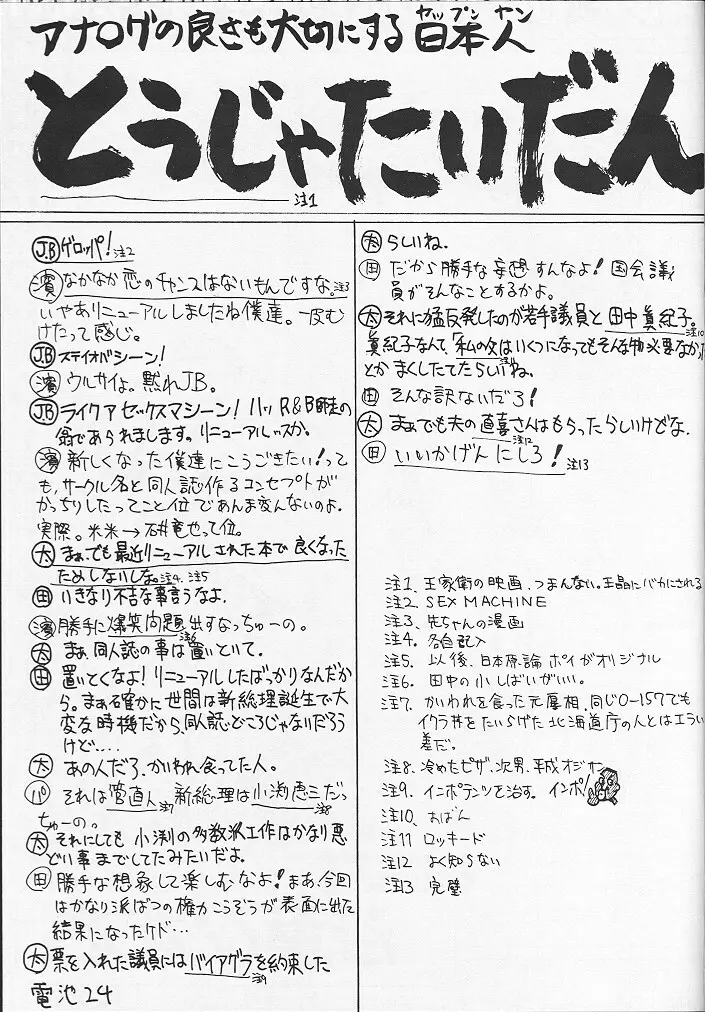 アナログの良さも大切にする 日本人
ヤップン ヤン
とうじゃたいだん
注1
J.B ゲロッパ! 注2
濱 なかなか恋のチャンスはないもんですな。注3
いやあリニューアルしましたね僕達。一皮む
けたって感じ。
JB ステイオバシーン!
濱 ウルサイよ。黙れJB。
JB ライクアセックスマシーン! ハッ R&B師走の
翁であられまします。リニューアルッスか。
濱 新しくなった僕達にこうごきたい!って
も、サークル名と同人誌作るコンセプトが
がっちりしたってこと位であんま変んないのよ.
実際。米米→石井竜也って位。
太 まぁでも最近リニューアルされた本で良くなった
ためしないしな。注4. 注5
田 いきなり不吉な事言うなよ.
濱 勝手に爆笑問題出すなっちゅーの。
注6
太 まぁ、同人誌の事は置いといて.
田 置いとくなよ! リニューアルしたばっかりなんだか
ら。まぁ確かに世間は新総理誕生で大
変な時機だから、同人誌どころじゃないだろう
けど....
太 あの人だろ、かいわれ食ってた人。
パ それは菅直人 新総理は小渕恵三だっ
注7 注8
ちゅーの。
太 それにしても小渕の多数派工作はかなり悪
どい事までしてたみたいだよ.
田 勝手な想象して楽しむなよ! まあ、今回
はかなり派ばつの権力こうぞうが表面に出た
結果になったケド...
太 票を入れた議員にはバイアグラを約束した
注9
電池24
太 らしいね.
田 だから勝手な妄想すんなよ! 国会議
員がそんなことするかよ。
太 それに猛反発したのが若手議員と田中眞紀子。
注10
眞紀子なんて、「私の父はいくつになってもそんな物必要なかった
注11
とかまくしたててたらしいね.
田 そんな訳ないだろ!
太 まぁでも夫の直喜さんはもらったらしいけどな.
注12
田 いいかげんにしろ!
注13
注1. 王家衛の映画. つまんない。王晶にバカにされる
注2. SEX MACHINE
注3. 先ちゃんの漫画
注4. 各自記入
注5. 以後、日本原論ポイがオリジナル
注6. 田中の小しばいがいい。
注7. かいわれを食った元厚相. 同じO-157でも
イクラ丼をたいらげた北海道庁の人とはエライ
差だ。
注8. 冷めたピザ、次男、平成オジサン
注9. インポテンツを治す。インポ!
注10. おばん
注11 ロッキード
注12 よく知らない
注13 完璧